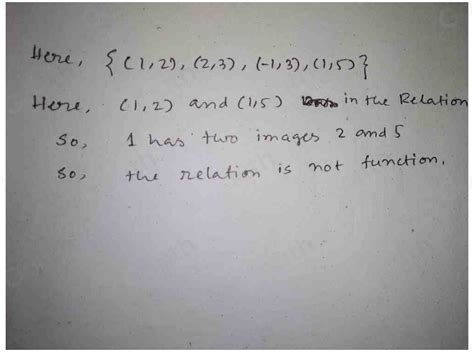 Here, {(1,2), (2,3), (-1,3), (1,5)}
Here, (1,2) and (1,5) in the Relation
So, 1 has two images 2 and 5
So, the relation is not function.